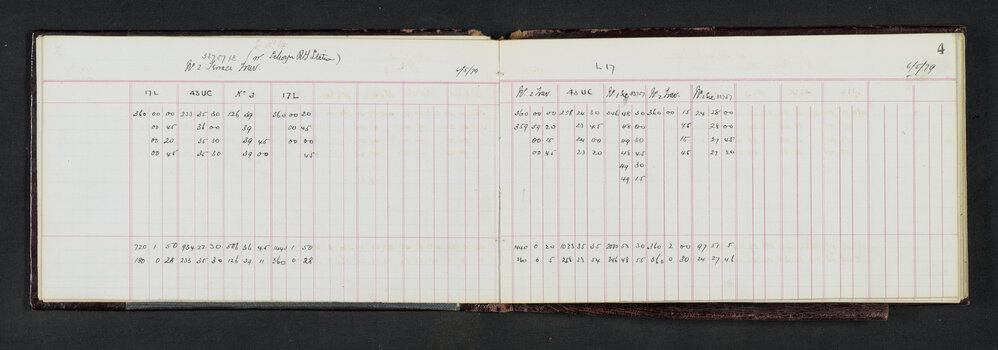 No 2 Trav.
4/5/79
17L 43UC No 3 17L
360 00 00 233 35 30 126 39 360 00 20
00 45 36 00 39 00 45
00 20 35 30 39 45 00 00
00 45 35 30 39 00 45
720 1 50 934 22 30 506 36 45 1440 1 50
180 0 28 233 35 30 126 39 11 360 0 28
4
L17
6/5/79
No 2 Trav. 43 UC No 2 Trav.
360 00 00 258 24 30 246 48 30 360 00 15 24 28 00
359 59 20 23 45 48 00 45 28 00
00 15 24 00 49 30 15 27 45
00 45 23 20 48 45 45 27 20
49 30
49 15
1440 0 20 1033 35 35 51 30 360 2 00 97 51 5
360 0 5 258 23 54 246 48 55 360 0 30 24 27 46